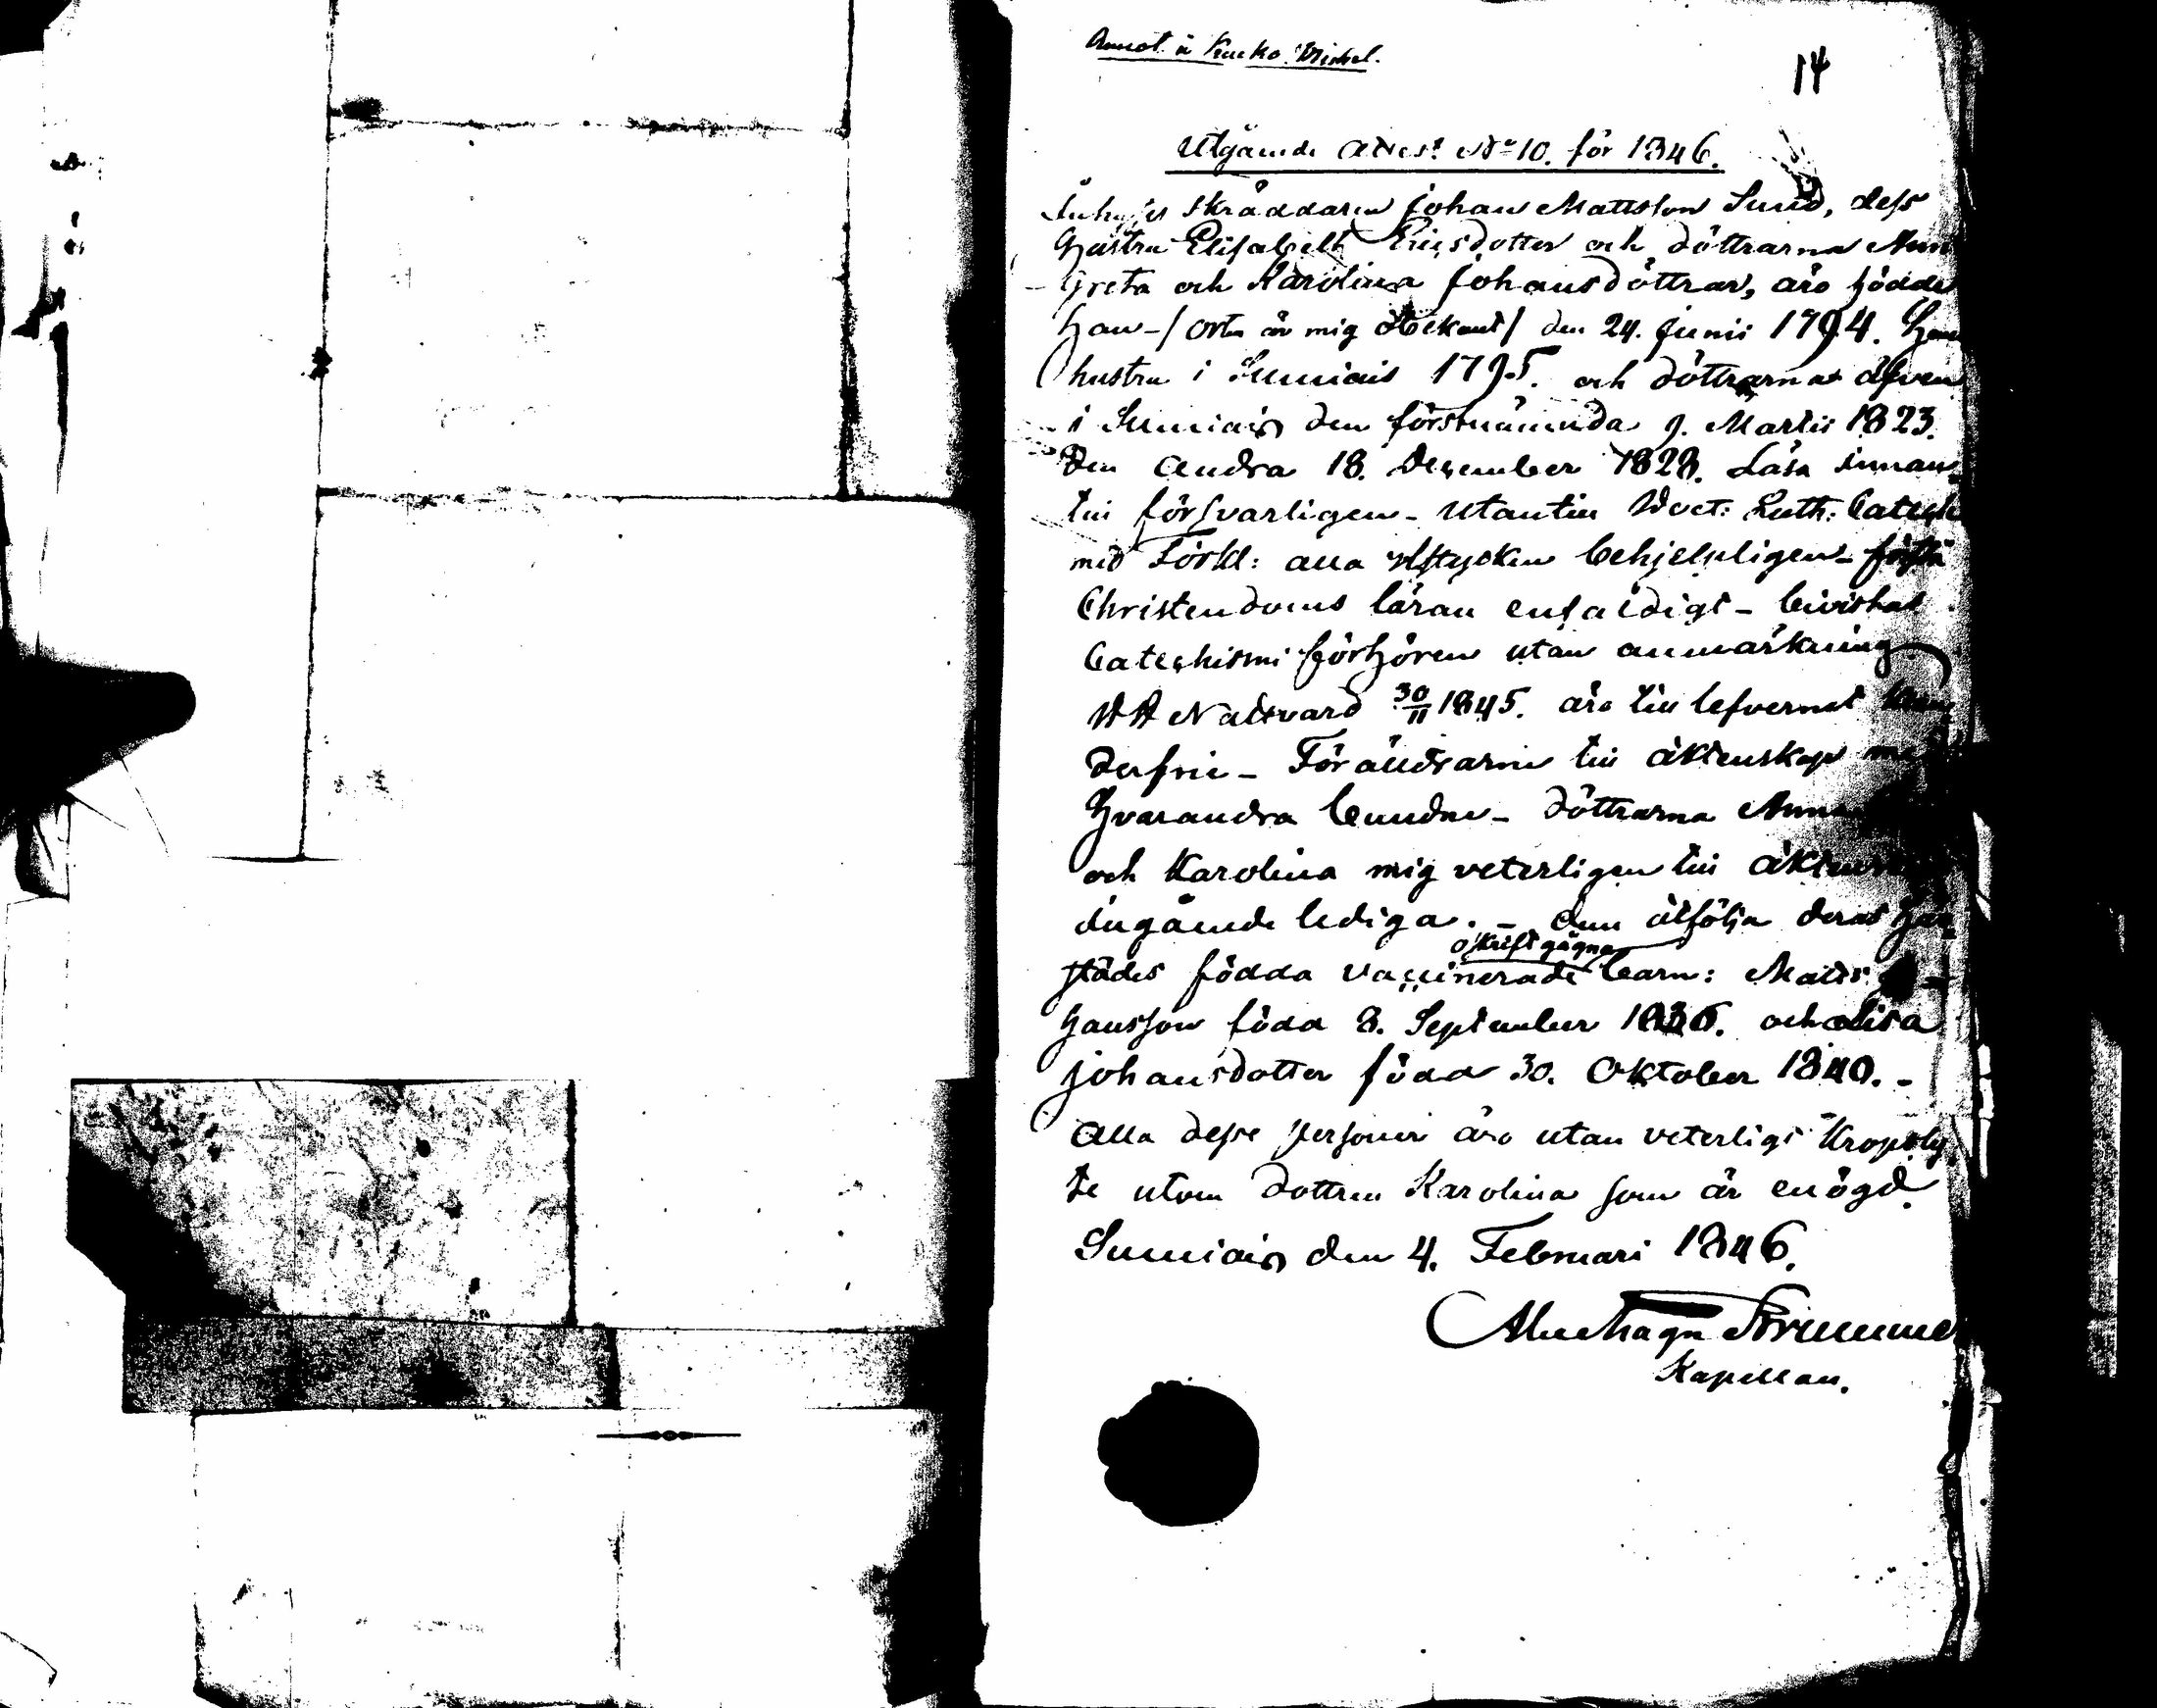 Annot. i Kyrko
14
Utgående Attest No 10. för 1846.
Inhyses Skräddaren Johan Mattsson Sund, dess
hustru Elisabeth Ericsdotter och döttrarna Ann
Greta och Karolina Johansdöttrar, äro födde
han -/ orten är mig obekant/ den 24. Junii 1794. Hans
hustru i Sumiais 1795. och döttrarna äfven
i Sumiais den förstnämnda 9. Martii 1823.
den andra 18. December 1828. Läsa innan
till försvarligen - utantill Doct: Luth: Catech
med Förkl: alla stycken behjelpligen - förstå
Christendoms läran enfaldigt - bivistat
Catechismi förhören utan anmärkning
HH Nattvard 30/11 1845. äro till lefvernet
derfrie - Föräldrarne till äktenskap med
hvarandra bundne - döttrarna Anna
och Karolina mig veterligen till äktenskaps
ingående lediga. - dem åtfölja deras här
städes födda vaccinerade oskriftgågna barn: Matts Jo-
hansson född 8. September 1836. och Lisa
Johansdotter född 30. Oktober 1840. -
Alla desse personer äro utan veterligt kroppsly
te utom dottren Karolina som är enögd.
Sumiais den 4. Februari 1846.
Kapellan.